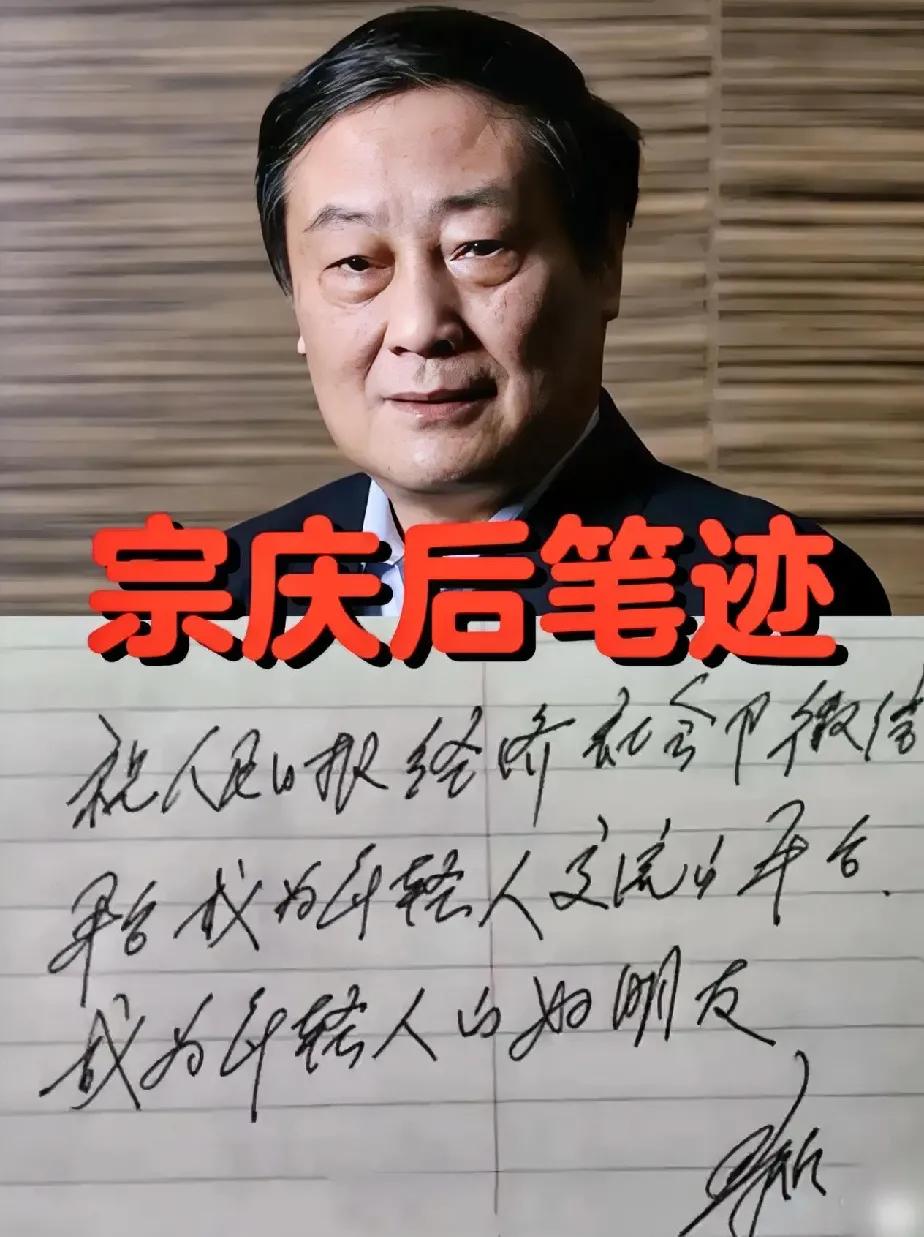 宗庆后笔迹
祝人民日报经济社会部微信
平台成为年轻人交流的平台.
成为年轻人的好朋友
宗庆后